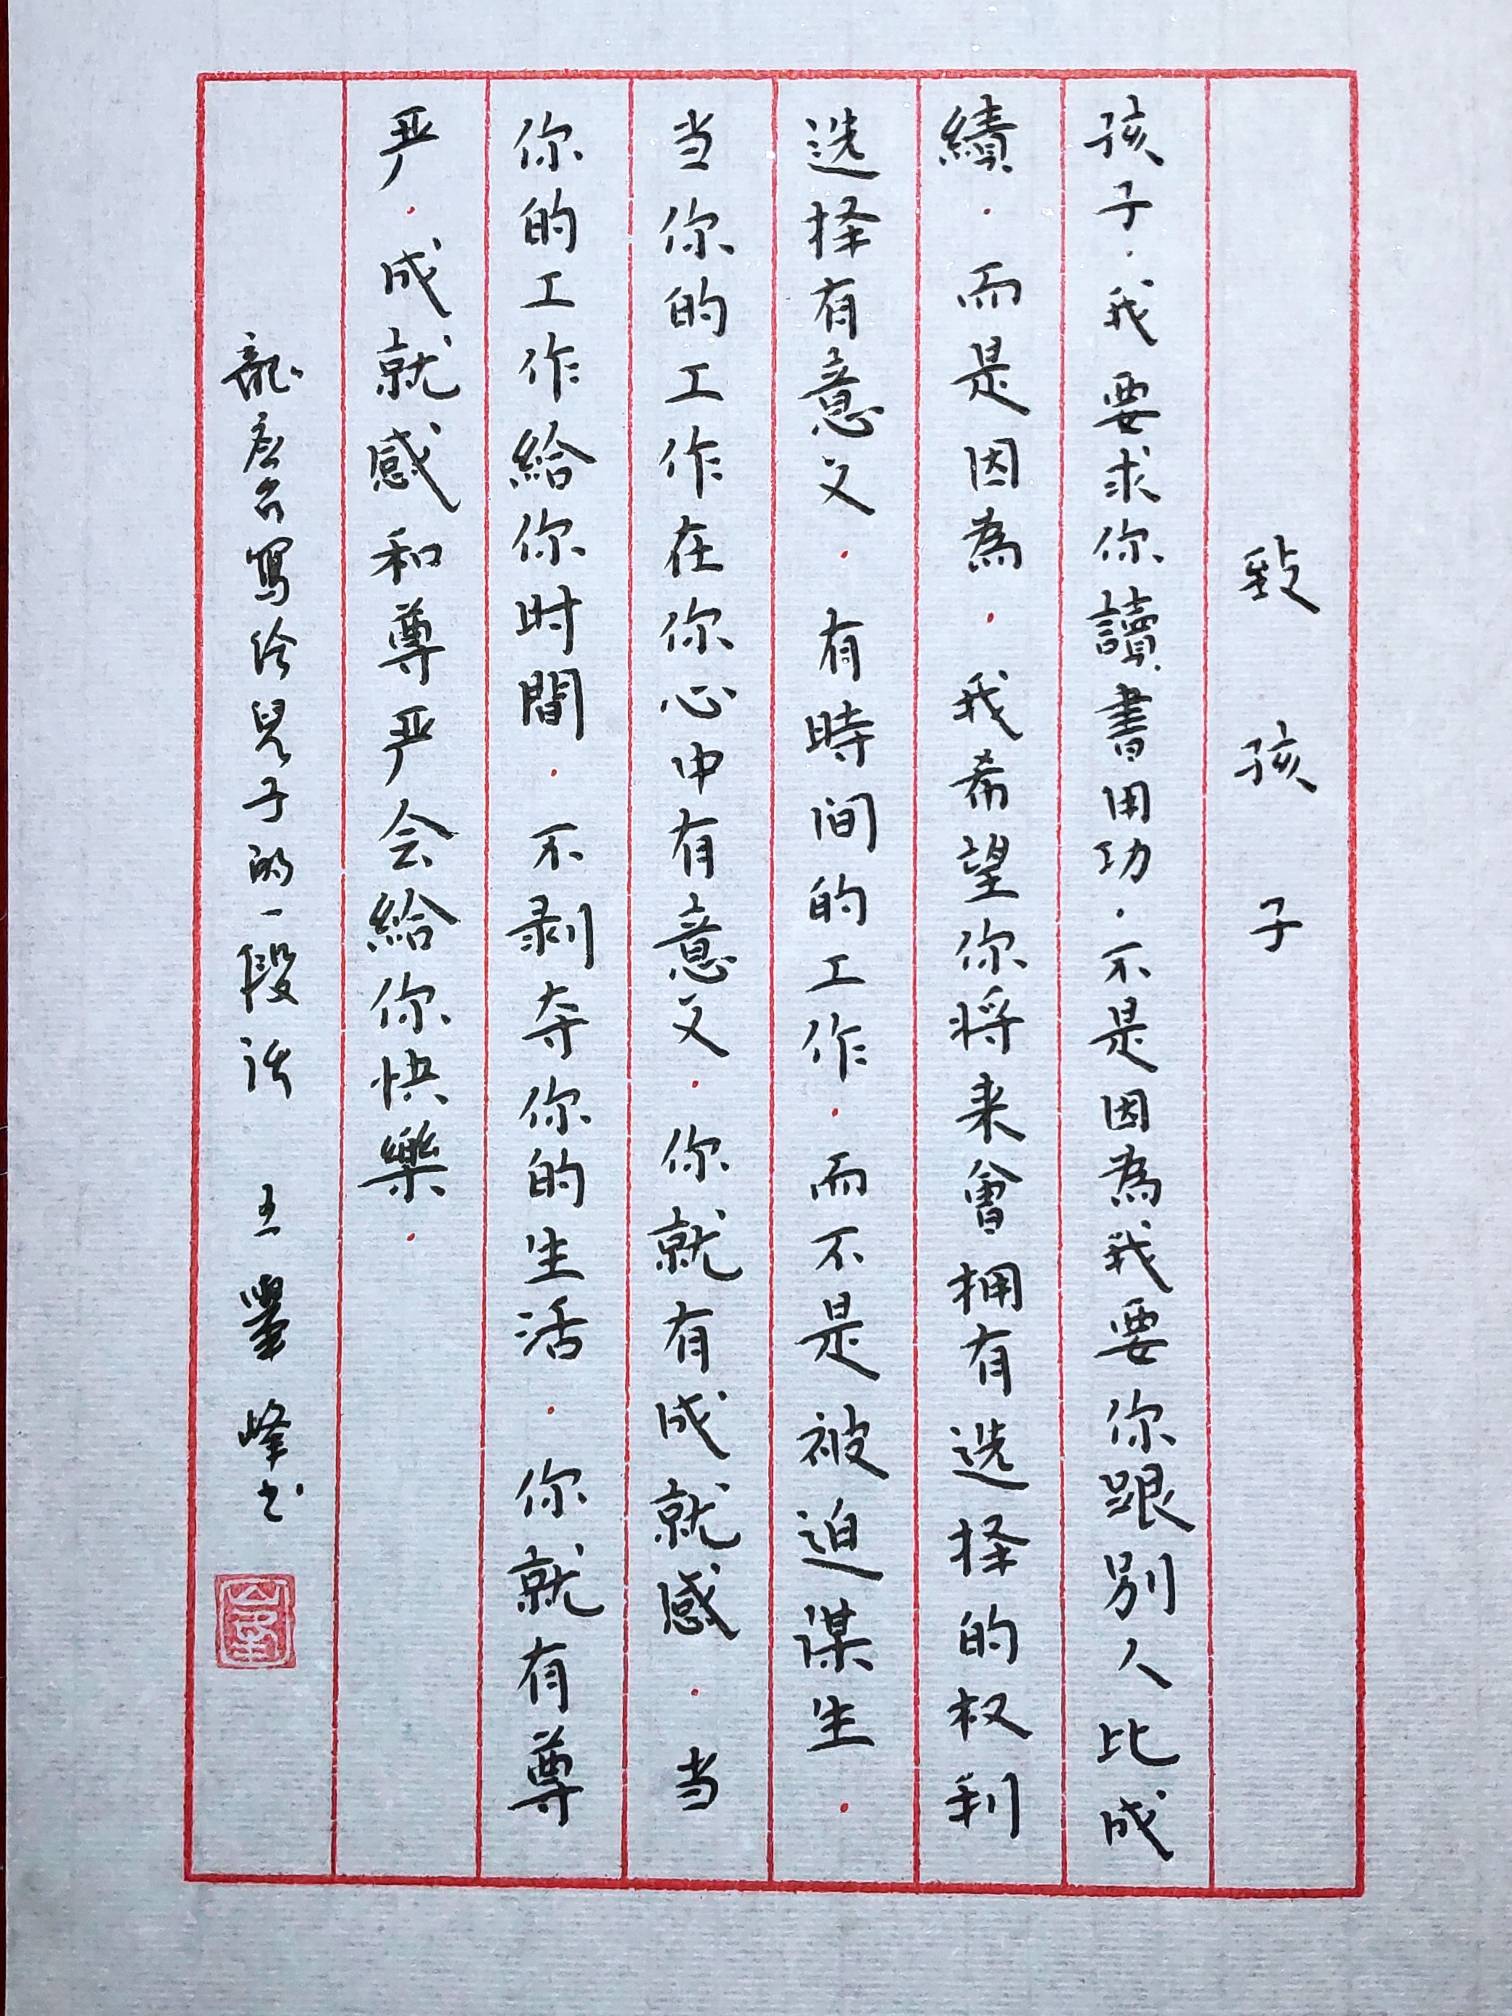 致孩子
孩子.我要求你讀書用功.不是因為我要你跟别人比成
績.而是因為.我希望你将来會拥有选择的权利
选择有意义.有時间的工作.而不是被迫谋生.
当你的工作在你心中有意义.你就有成就感.当
你的工作給你时間.不剥夺你的生活.你就有尊
严.成就感和尊严会給你快樂.
龍应台寫给兒子的一段话 王 峰书